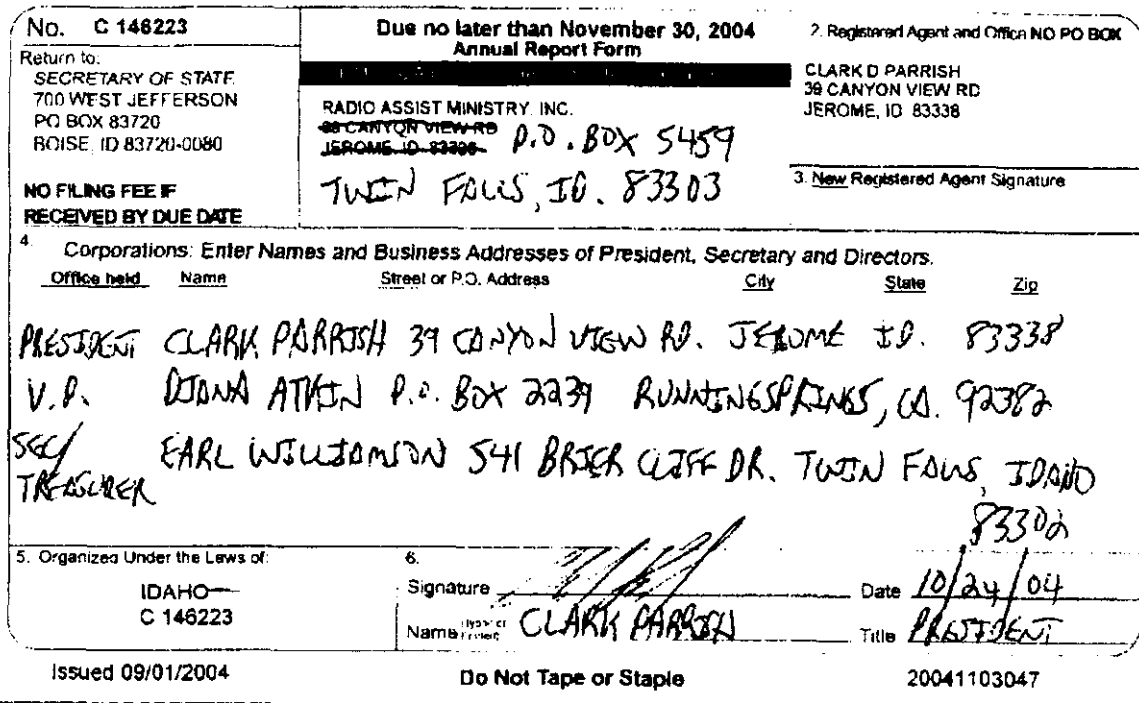 No. C 146223
Return to:
SECRETARY OF STATE
700 WEST JEFFERSON
PO BOX 83720
BOISE, ID 83720-0080
NO FILING FEE IF
RECEIVED BY DUE DATE
Due no later than November 30, 2004
Annual Report Form
RADIO ASSIST MINISTRY, INC.
39 CANYON VIEW RD
JEROME, ID 83338
P.O. BOX 5459
TWIN FALLS, ID. 83303
2. Registered Agent and Office NO PO BOX
CLARK D PARRISH
39 CANYON VIEW RD
JEROME, ID 83338
3. New Registered Agent Signature
4. Corporations: Enter Names and Business Addresses of President, Secretary and Directors.
Office held Name Street or P.O. Address City State Zip
PRESIDENT CLARK PARRISH 39 CANYON VIEW RD. JEROME ID. 83338
V.P. DIANA ATKIN P.O. BOX 2239 RUNNINGSPRINGS, CA. 92382
SEC/ TREASURER EARL WILLIAMSON 541 BRIER CLIFF DR. TWIN FALLS, IDAHO
83302
5. Organized Under the Laws of:
IDAHO
C 146223
6.
Signature Date 10/24/04
Name CLARK PARRISH Title PRESIDENT
Issued 09/01/2004 Do Not Tape or Staple 20041103047